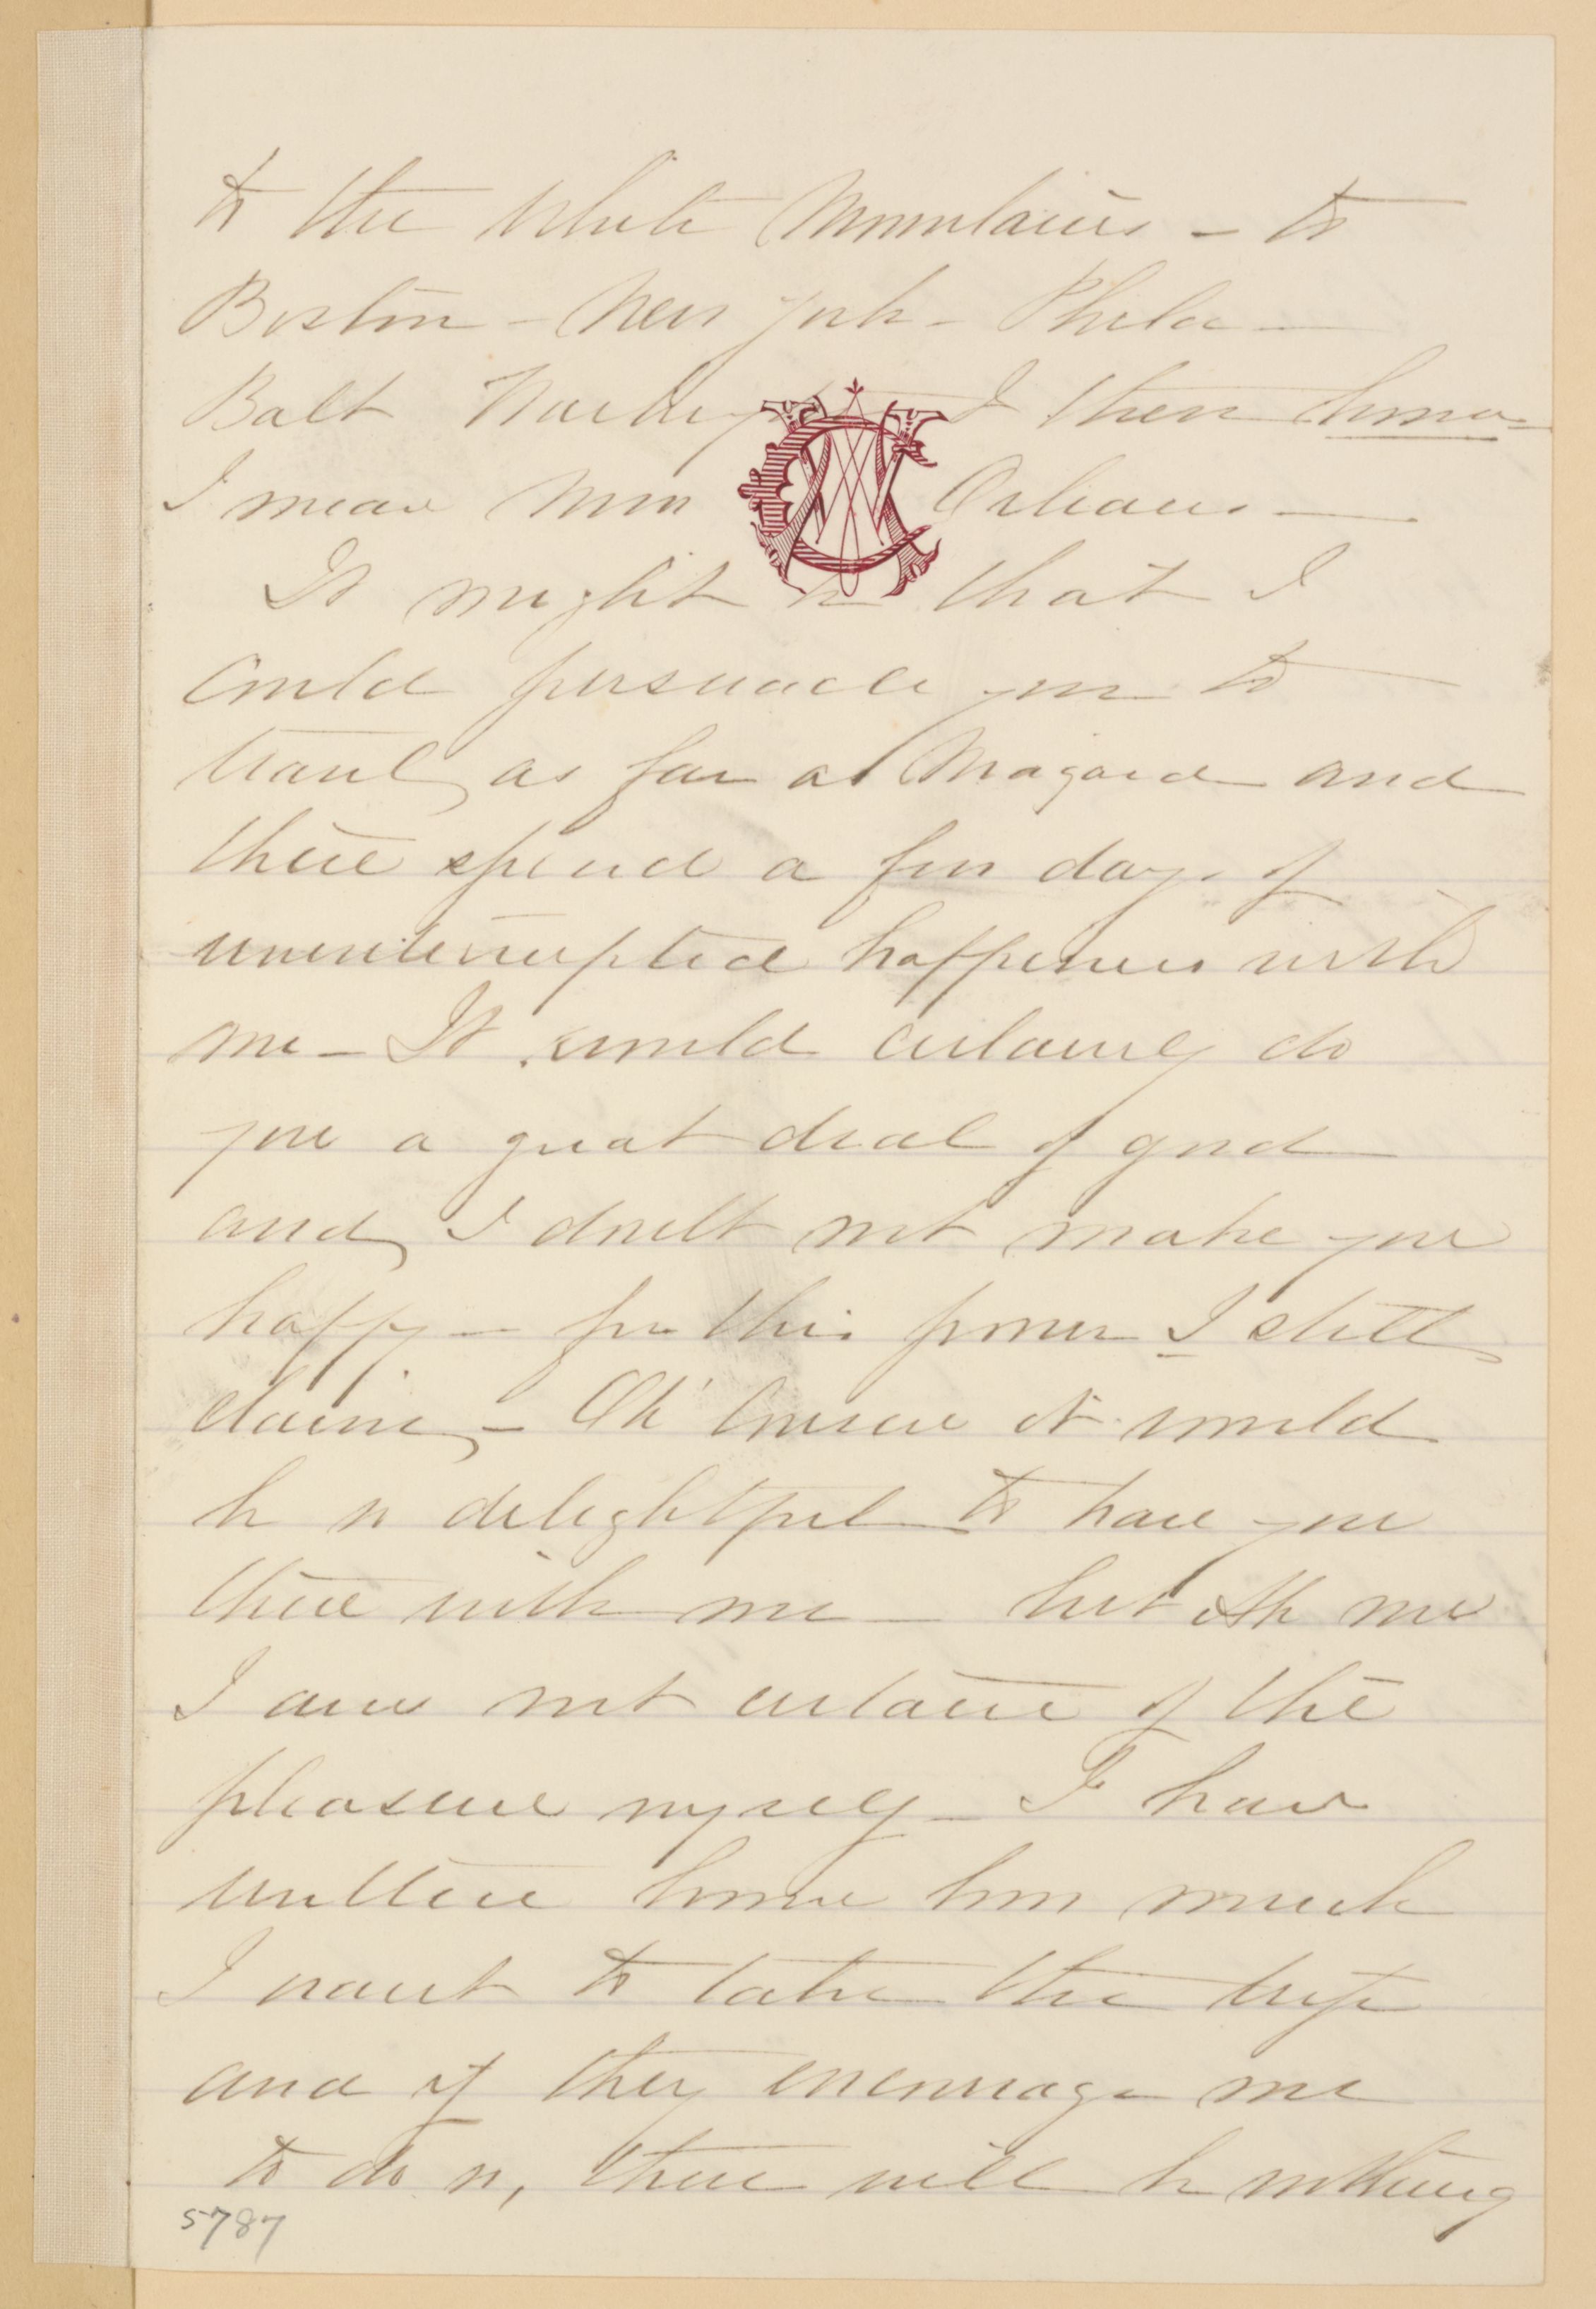 to the White Mountains – to
Boston – New York – Phila –
Balt Washington & then home –
I mean New Orleans –
It might be that I
could persuade you to
travel as far as Niagara and
there spend a few days of
uninterrupted happiness with
me – It would certainly do
you a great deal of good
and I doubt not make you
happy – for this power I still
claim, – Oh! it would
be so delightful to have you
there with me – but Ah me
I am not certain of the
pleasure myself – I have
written home how much
I want to take the trip
and if they encourage me
to do so, there will be nothing
5787